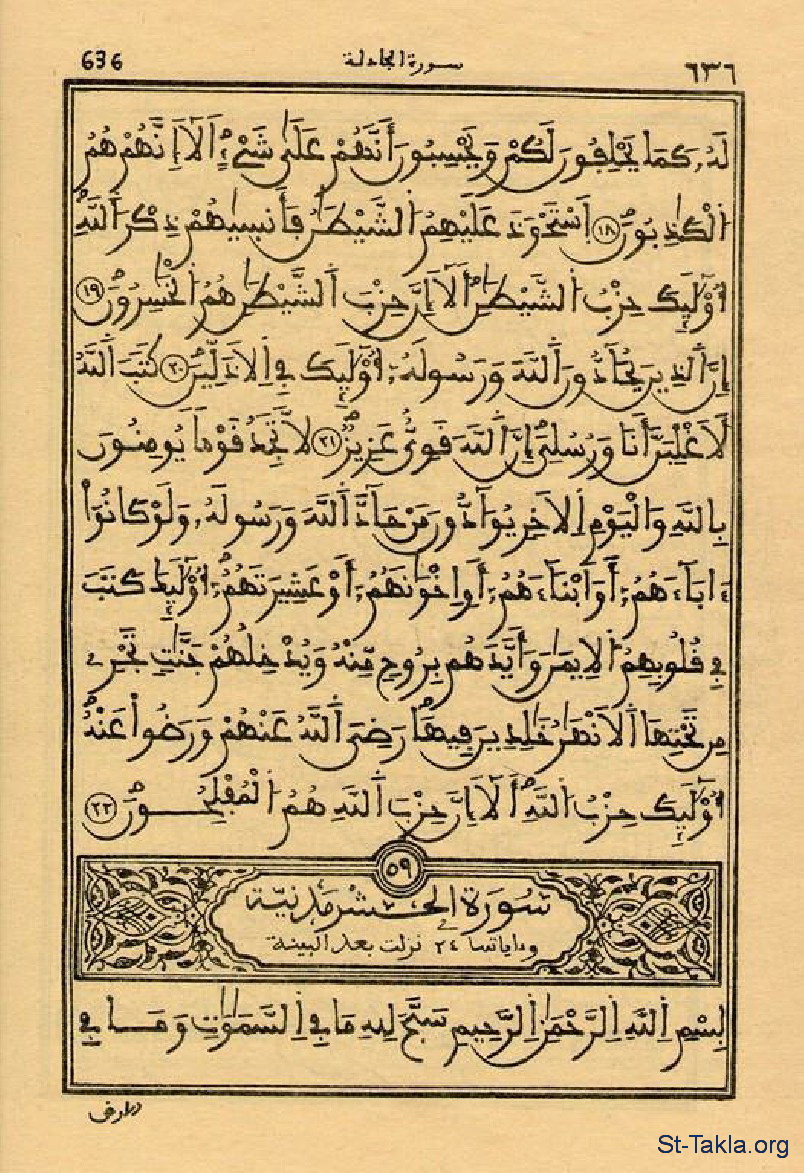 ٦٣٦ سورة المجادلة 636
لَهُۥ كَمَا يَحْلِفُونَ لَكُمْ وَيَحْسِبُونَ أَنَّهُمْ عَلَىٰ شَےْءٍ اَلَآ إِنَّهُمْ هُمُ
اُلْكَٰذِبُونَ ١٨ اَسْتَحْوَذَ عَلَيْهِمُ اُلشَّيْطَٰنُ فَأَنسَيٰهُمْ ذِكْرَ اَللَّهِ
أُوْلَٰٓئِكَ حِزْبُ اُلشَّيْطَٰنِ أَلَآ إِنَّ حِزْبَ اَلشَّيْطَٰنِ هُمُ اُلْخَٰسِرُونَ ١٩
إِنَّ اَلذِينَ يُحَآدُّونَ اَللَّهَ وَرَسُولَهُۥٓ أُوْلَٰٓئِكَ فِے اِلَاذَلِّينَ ٢٠ كَتَبَ اَللَّهُ
لَأَغْلِبَنَّ أَنَا وَرُسُلِيَ إِنَّ اَللَّهَ قَوِيٌّ عَزِيزٌ ٢١ لَّا تَجِدُ قَوْماً يُومِنُونَ
بِاللَّهِ وَالْيَوْمِ اِلَاخِرِ يُوَآدُّونَ مَنْ حَآدَّ اَللَّهَ وَرَسُولَهُۥ وَلَوْ كَانُوٓاْ
ءَابَآءَهُمُۥٓ أَوَ اَبْنَآءَهُمُۥٓ أَوِ اِخْوَٰنَهُمُۥٓ أَوْ عَشِيرَتَهُمُۥٓ أُوْلَٰٓئِكَ كَتَبَ
فِے قُلُوبِهِمُ اُلِايمَٰنَ وَأَيَّدَهُم بِرُوحٍ مِّنْهُ وَيُدْخِلُهُمْ جَنَّٰتٍ تَجْرِے
مِن تَحْتِهَا اَلَانْهَٰرُ خَٰلِدِينَ فِيهَا رَضِيَ اَللَّهُ عَنْهُمْ وَرَضُواْ عَنْهُ
أُوْلَٰٓئِكَ حِزْبُ اُللَّهِ أَلَآ إِنَّ حِزْبَ اَللَّهِ هُمُ اُلْمُفْلِحُونَ ٢٢
٥٩
سُورَة الحَشْر مَدنيّة
وءاياتها ٢٤ نزلت بعد البينة
بِسْمِ اِللَّهِ اِلرَّحْمَٰنِ اِلرَّحِيمِ سَبَّحَ لِلهِ مَا فِے اِلسَّمَٰوَٰتِ وَمَا فِے
الارض
St-Takla.org